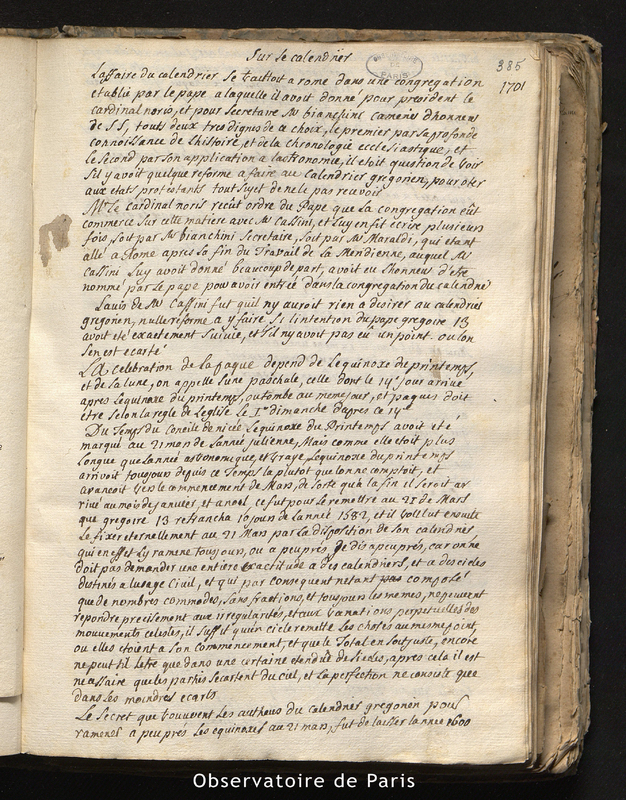 Sur le calendrier
385
1701
PARIS
Laffaire du calendrier se traittoit a rome dans une congregation
etablie par le pape a laquelle il avoit donné pour president le
cardinal noris, et pour secretaire Mr bianchini camerier dhonneur
de SS, touts deux tres dignes de ce choix, le premier par sa profonde
connoissance de lhistoire, et de la chronologie ecclesiastique, et
le second par son application a lastronomie, il etoit question de voir
sil y avoit quelque reforme a faire au calendrier gregorien, pour oter
aux etats protestants tout sujet de ne le pas recevoir
Mr le cardinal noris reçut ordre du Pape que la congregation eût
commerce sur cette matiere avec Mr Cassini, et luy en fit ecrire plusieurs
fois, soit par Mr bianchini secretaire, soit par Mr Maraldi, qui etant
allé a Rome apres la fin du Travail de la Meridienne, auquel Mr
Cassini luy avoit donné beaucoup de part, avoit eu lhonneur d'etre
nommé par le pape pour avoir entrée dans la congregation du calendrier
Lavis de Mr Cassini fut quil ny auroit rien a desirer au calendrier
gregorien, nulle reforme a y faire si lintention du pape gregoire 13
avoit eté exactement suivie, et sil ny avoit pas eû un point ou lon
sen est ecarté
La celebration de la paque depend de lequinoxe du printemps,
et de la lune, on appelle lune paschale, celle dont le 14e jour arrive
apres lequinoxe du printemps, ou tombe au meme jour, et paques doit
etre selon la regle de leglise le 1er dimanche dapres ce 14e
Du Temps du Concile de nicée lequinoxe du Printemps avoit eté
marqué au 21 mars de lannée julienne, Mais comme elle etoit plus
longue que lannée astronomique, et vraye, lequinoxe du printemps
arrivoit toujours depuis ce temps la plutot que lon ne comptoit, et
avancoit vers le commencement de Mars, de sorte quà la fin il seroit ar
rivé au mois de janvier, et a noel, ce fut pour le remettre au 21 de Mars
que gregoire 13 retrancha 10 jours de lannée 1582, et il voulut ensuite
le fixer eternellement au 21 Mars par la disposition de son calendrier
qui en effet ly ramene toujours, ou a peu pres, je dis a peu pres, car on ne
doit pas demander une entiere exactitude a des calendriers, et a des cicles
destinés a lusage civil, et qui par consequent netant composé
que de nombres commodes, sans fractions, et toujours les memes, ne peuvent
repondre precisement aux irregularités, et aux variations perpetuelles des
mouvements celestes, il suffit quun cicle remette les choses au meme point
ou elles etoient a son commencement, et que le Total en soit juste, encore
ne peut il letre que dans une certaine etendue de siecles, apres cela il est
necessaire que les parties secartent du ciel, et la perfection ne consiste que
dans les moindres ecarts
Le secret que trouverent les autheurs du calendrier gregorien pour
ramener a peu pres les equinoxes au 21 mars, fut de laisser lannée 1600
Observatoire de Paris